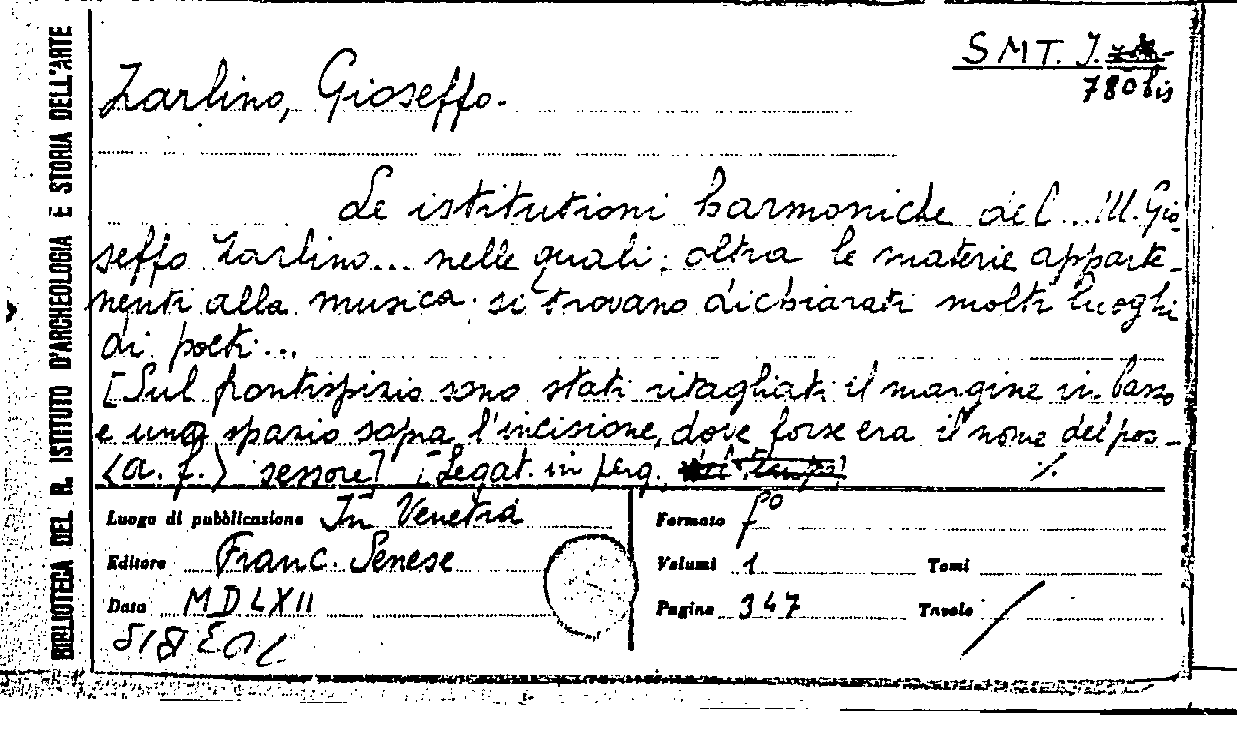 BIBLIOTECA DEL R. ISTITUTO D'ARCHEOLOGIA E STORIA DELL'ARTE
S M T. J.
780 bis
Zarlino, Gioseffo.
Le istitutioni harmoniche del... M. Gio
seffo Zarlino... nelle quali; oltra le materie apparte-
nenti alla musica si trovano dichiarati molti luoghi
di poeti...
[Sul frontispizio sono stati ritagliati il margine in basso
e uno spazio sopra l'incisione, dove forse era il nome del pos-
(a. f.) sessore] [Legat. in perg.
Luogo di pubblicazione In Venetia
Editore Franc. Senese
Data MDLXII
Formato fº
Volumi 1 Tomi
Pagine 347 Tavole /